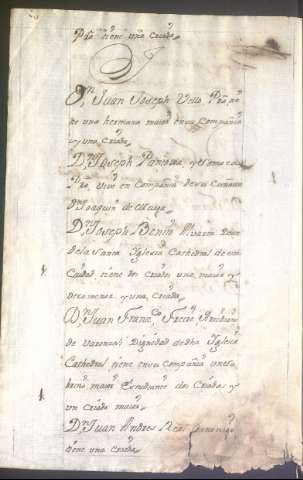 Pro tiene una Criada
Dn Juan Joseph Vello Pro
ne una hermana maior en su Compañia
y una Criada
Dn Joseph
Pro, vive en Compañia de su Cuñado
Dn Joaquin de
Dn Joseph Benito Alvarez
de la Santa Iglesia Cathedral de esta
Ciudad tiene dos Criados uno maior y
otro menor y una Criada
Dn Juan Franco
de Dignidad de dha Iglesia
Cathedral tiene en su Compañia un so
brino maior Estudiante dos Criadas y
un Criado maior
Dn Juan Andres
tiene una Criada